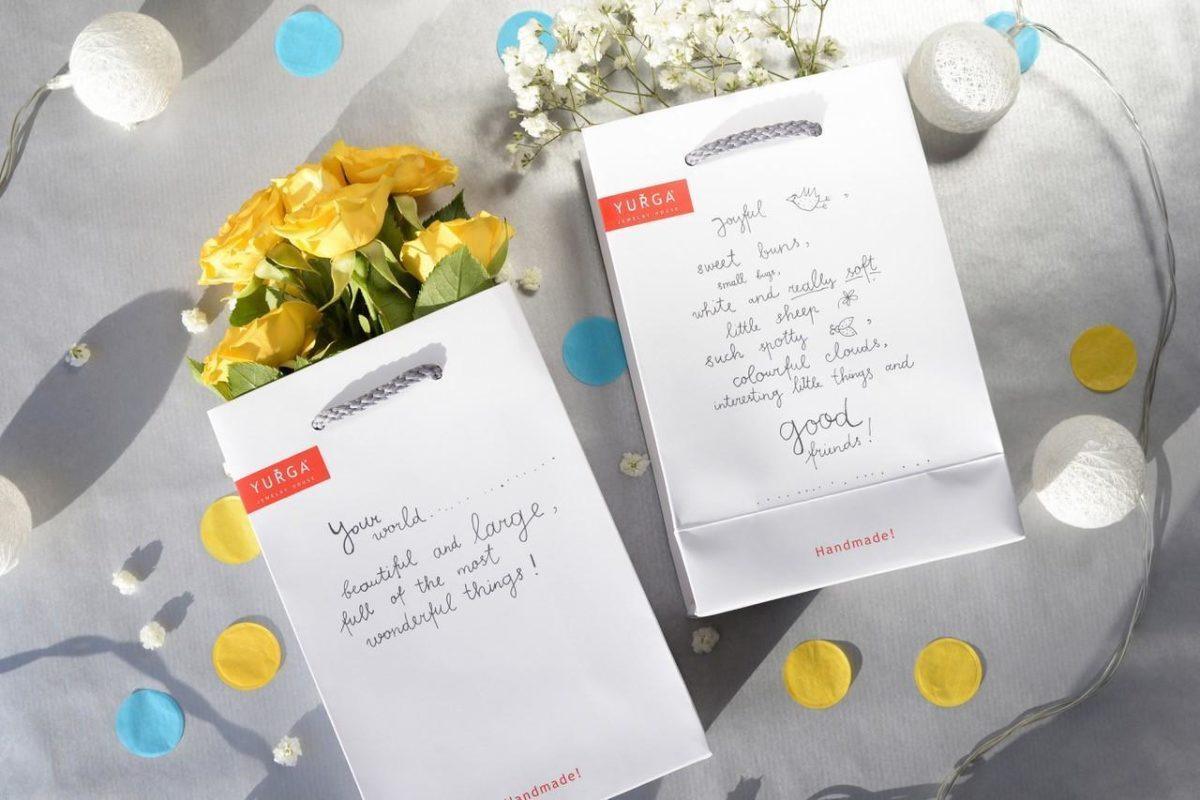 YURGA
JEWELRY HOUSE
Your
world..............
beautiful and large,
full of the most
wonderful things!
Handmade!
YURGA
JEWELRY HOUSE
Joyful ,
sweet buns,
small bugs,
white and really soft
little sheep
such spotty ,
colourful clouds,
interesting little things and
good
friends!
Handmade!